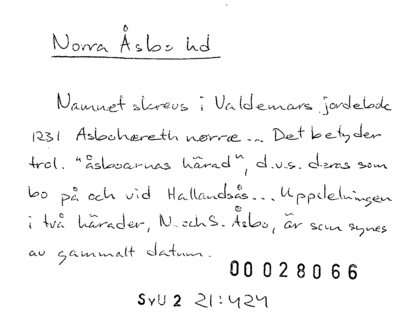 Norra Åsbo hd
Namnet skrevs i Valdemars jordebok
1231 Asbohæreth nørræ... Det betyder
trol. "åsboarnas härad", d.v.s. deras som
bo på och vid Hallandsås... Uppdelningen
i två härader, N. och S. Åsbo, är som synes
av gammalt datum.
00028066
SvU 2 21:424